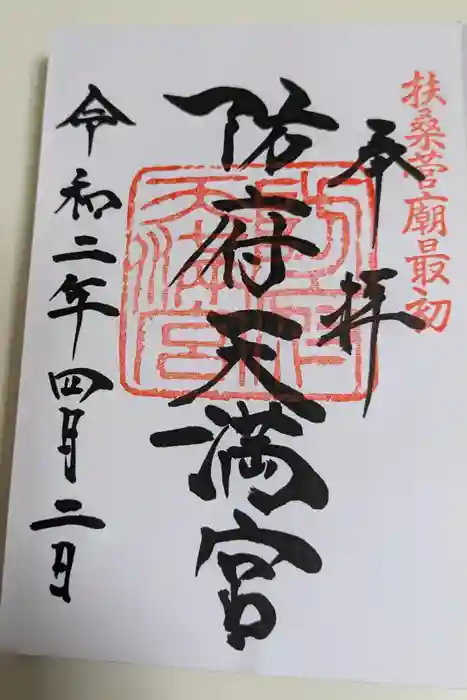 扶桑菅廟最初
奉拝
防府天満宮
防府宮
天満宮
令和二年四月二日